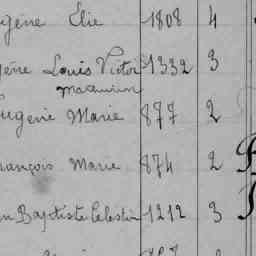 gène Elie 1808 4
gène Louis Victor 1332 3
Maximin
Eugène Marie 877 2
rançois Marie 874 2
n Baptiste Celestin 1212 3